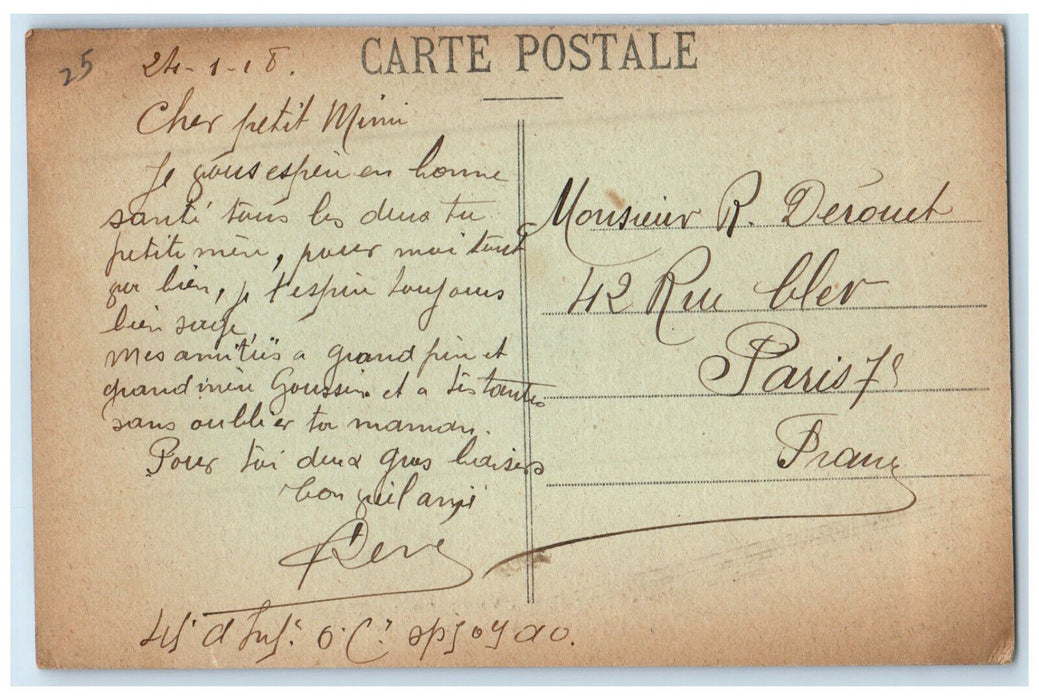 25
24-1-18.
CARTE POSTALE
Cher petit Mimi
Je vous espère en bonne
santé tous les deux ta
petite mère, pour moi tout
va bien, je t'espère toujours
bien sage.
Mes amitiés a grand père et
grand mère Goussin et a tes tantes
sans oublier ta maman.
Pour toi deux gros baisers
Ton
Monsieur R. Dérouet
42 Rue Cler
Paris 7e
France